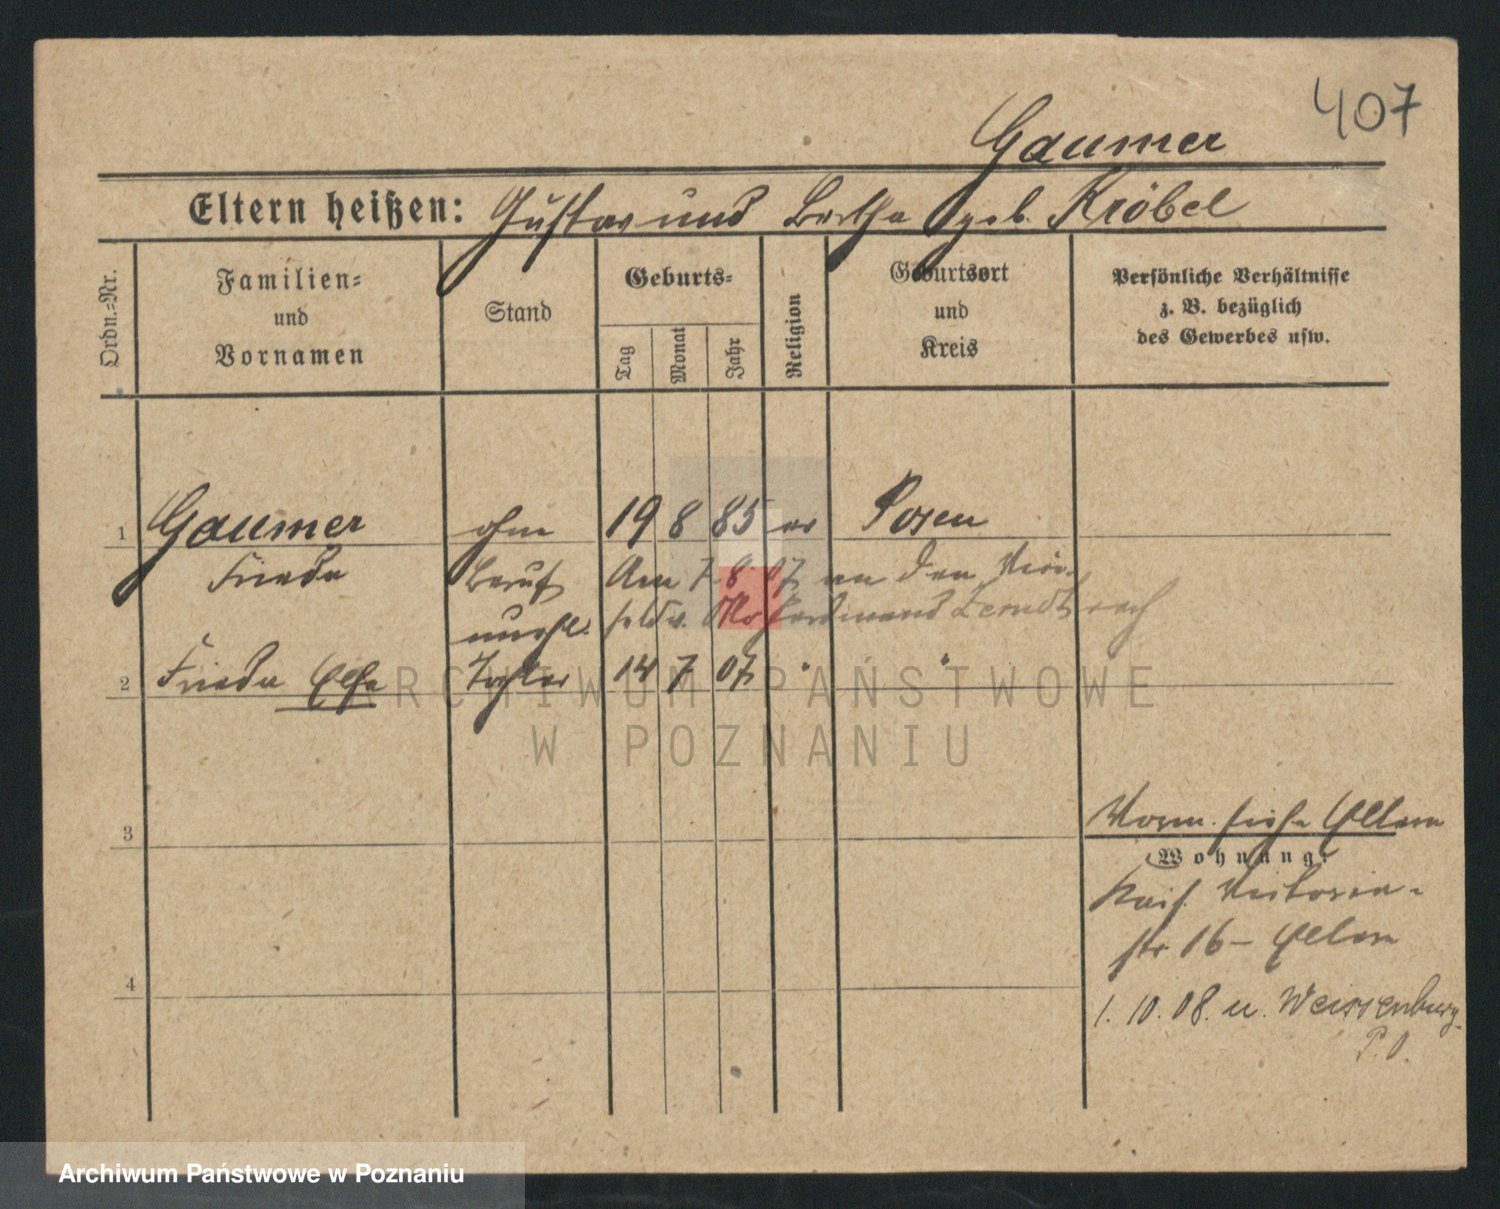 407
Gaumer
Eltern heißen: Gustav und Bertha geb. Kröbel
Ordn.-Nr.
Familien-
und
Vornamen
Stand
Geburts-
Tag
Monat
Jahr
Religion
Geburtsort
und
Kreis
Persönliche Verhältnisse
z. B. bezüglich
des Gewerbes usw.
1 Gaumer ohne 19 8 85 ev Posen
Frieda Beruf Am 7. 8. 07 an den
unehl. Ferdinand
2 Frieda Else Tochter 14 7 07 " "
3
4
Vorm. siehe Eltern
Wohnung:
Kais. Viktoria-
str 16 – Eltern
1. 10. 08. n. Weissenburg
P. O.
ARCHIWUM PAŃSTWOWE
W POZNANIU
Archiwum Państwowe w Poznaniu